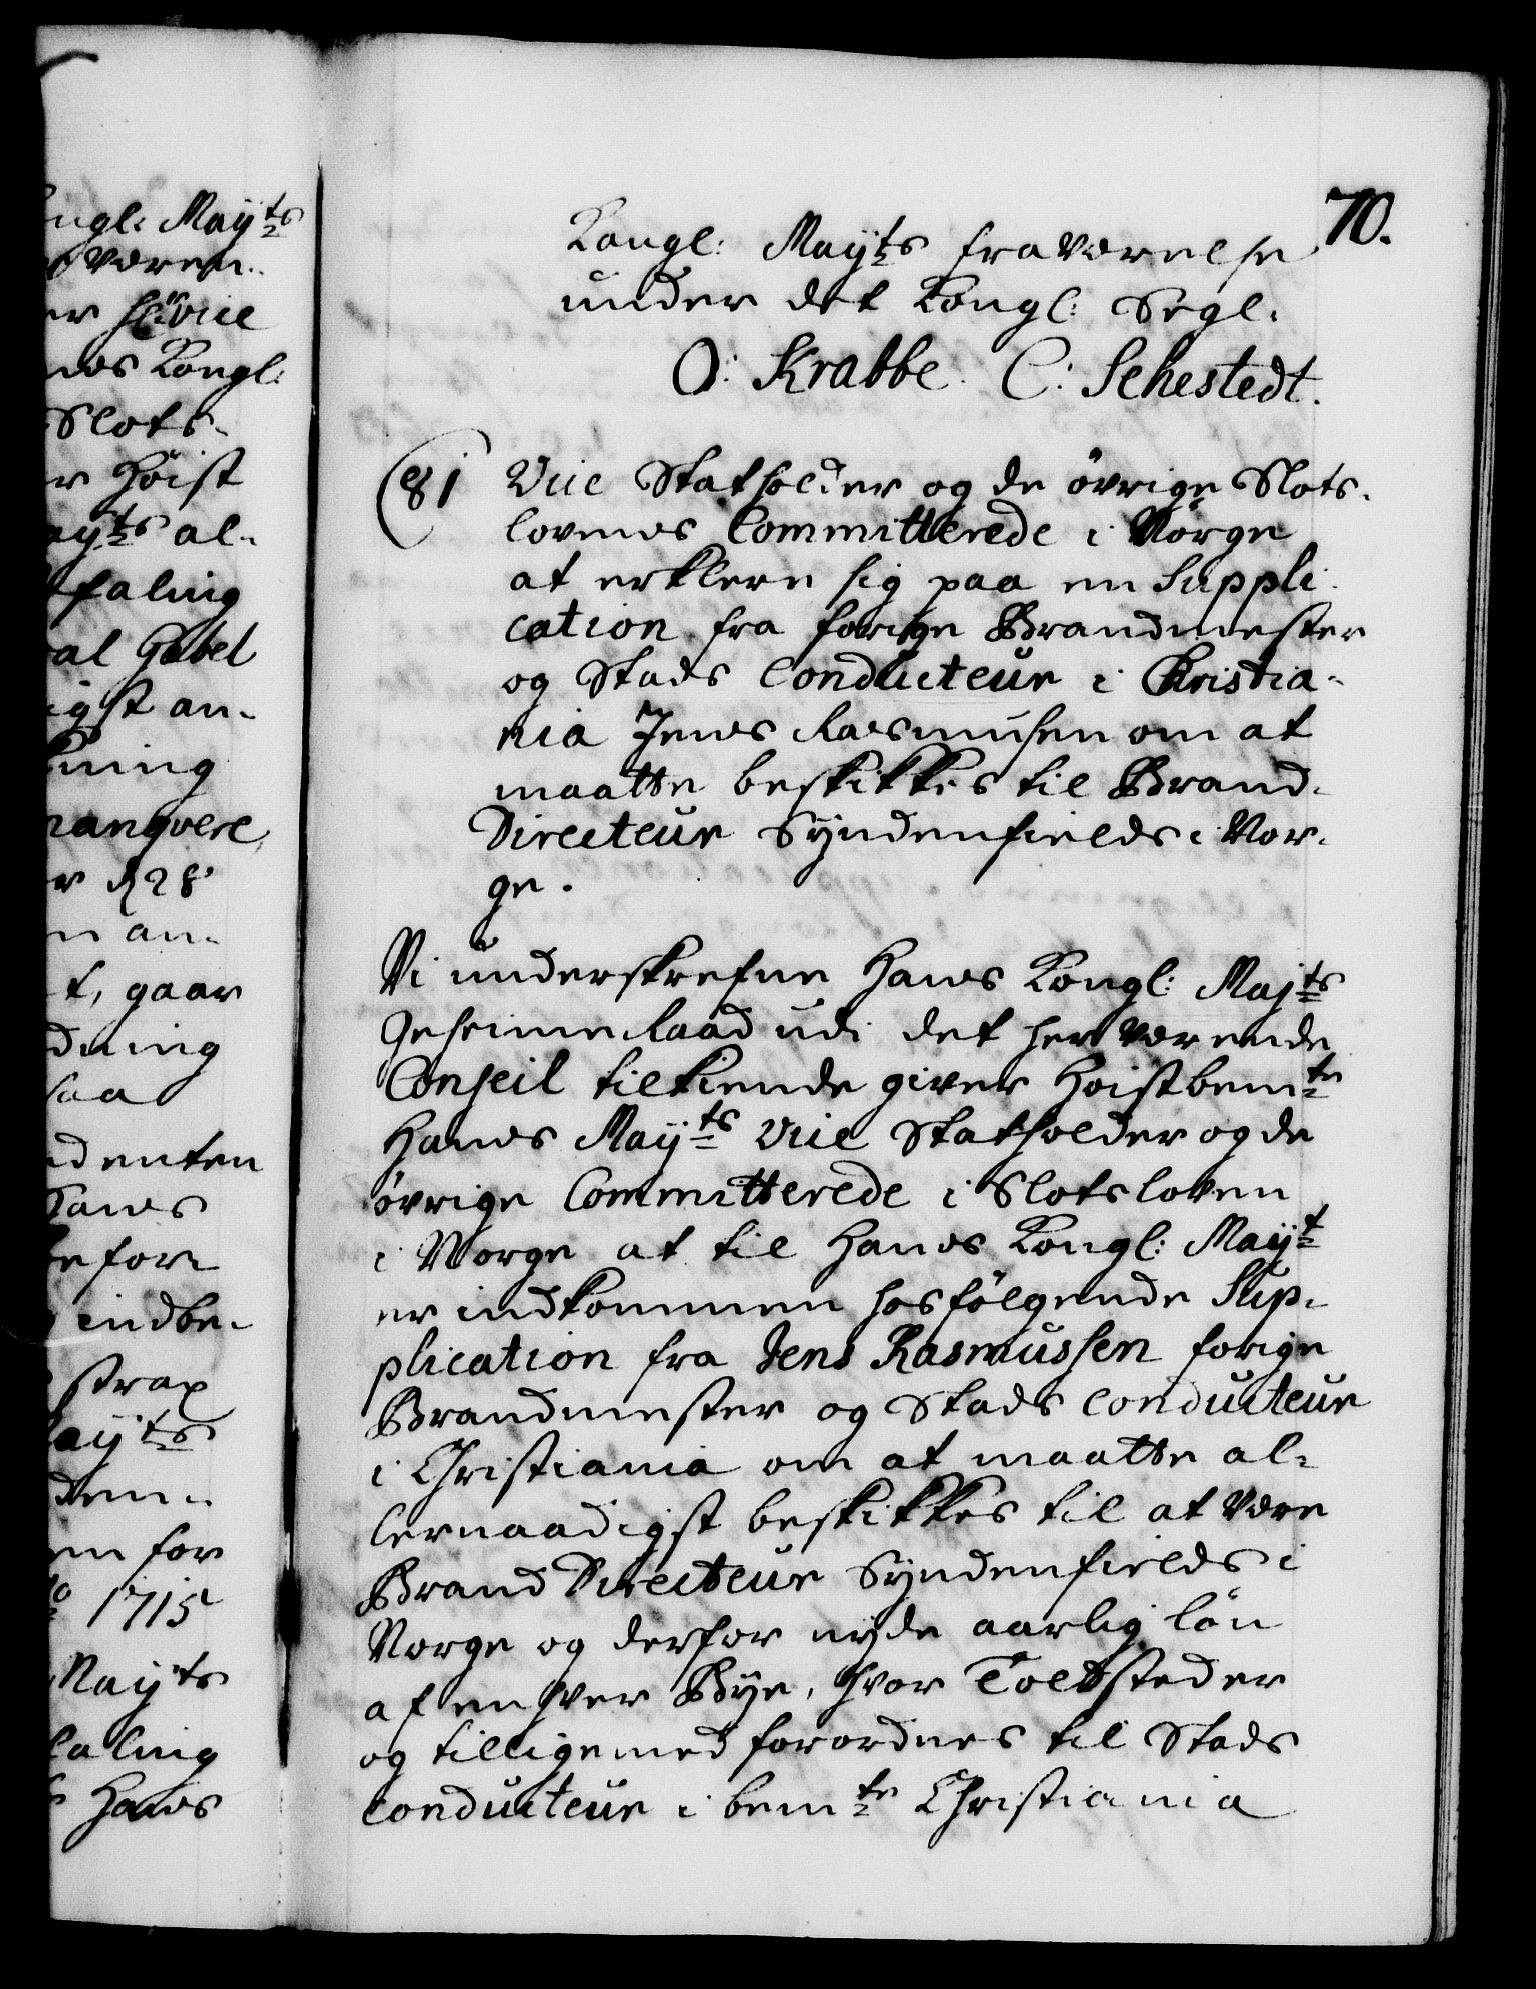 ngl: Mayts
væren-
er h: Vice
ndes Kongl:
Slots-
er Høist
ayts al-
faling
al Gabel
igst an-
ning
ranqvere
r d 28
n an-
t, gaar
dning
saa
denten
Hans
befor-
indbe-
strax
Mayts
den-
en for
1715
Mayts
faling
Hans
70.
Kongl: Mayts fraværelse
under det Kongl: Segl.
O: Krabbe. C: Sehestedt.
81 Vice Statholder og de øvrige Slots-
lovens Committerede i Norge
at erklere sig paa en Suppli-
cation fra forige Brandmester
og Stads Conducteur i Christia-
nia Jens Rasmusen om at
maatte beskikkes til Brand-
Directeur Syndenfields i Nor-
ge.
Vi underskrefne Hans Kongl: Mayts
Geheime Raad udi det her værende
Conseil tilkiende giver Høistbemte
Hans Mayts Vice Statholder og de
øvrige Committerede i Slotsloven
i Norge at til Hans Kongl: Mayt
er indkommen hosfølgende Sup-
plication fra Jens Rasmussen forige
Brandmester og Stads Conducteur
i Christiania om at maatte al-
lernaadigst beskikkes til at være
Brand Directeur Syndenfields i
Norge og derfor nyde aarlig løn
af en hver Bye, hvor Toldsteder
og tilligemed forordnes til Stads
Conducteur i bemte Christiania